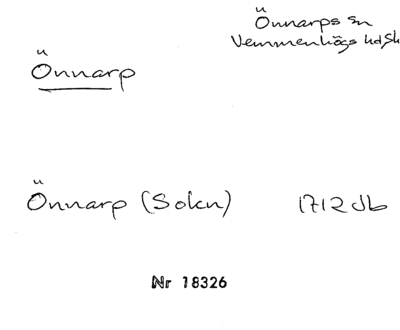 Önnarps sn
Vemmenhögs hd, Sk
Önnarp
Önnarp (Sokn) 1712 Jb
Nr 18326